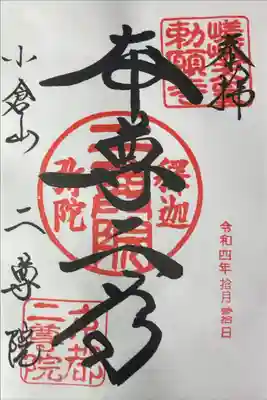 奉拝
嵯峨天皇
勅願寺
本尊二尊
釋迦
二尊院
弥陀
小倉山 二尊院
京都
二尊院
令和四年 拾月 參日